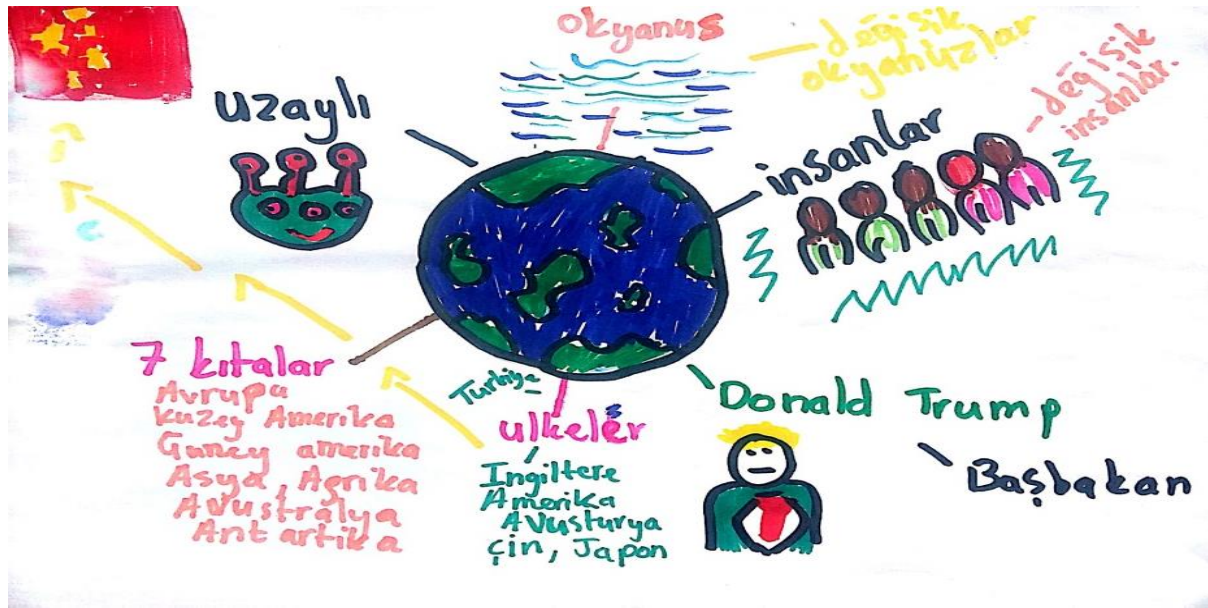 okyanus
değişik
okyanüzlar
uzaylı
insanlar
değişik
insanlar.
7 kıtalar
Avrupa
kuzey Amerika
Guney amerika
Asya, Agrika
Avustralya
Antartika
Türkiye
ulkeler
Ingiltere
Amerika
Avusturya
çin, Japon
Donald Trump
Başbakan